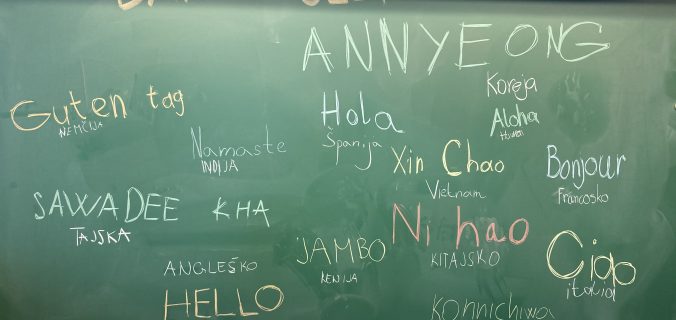 ANNYEONG
Koreja
Guten tag
NEMČIJA
Hola
Španija
Aloha
Namaste
INDIJA
Xin Chao
Vietnam
Bonjour
Francosko
SAWADEE KHA
TAJSKA
Ni hao
KITAJSKO
JAMBO
KENIJA
Ciao
italija
ANGLEŠKO
HELLO
KONNICHIWA